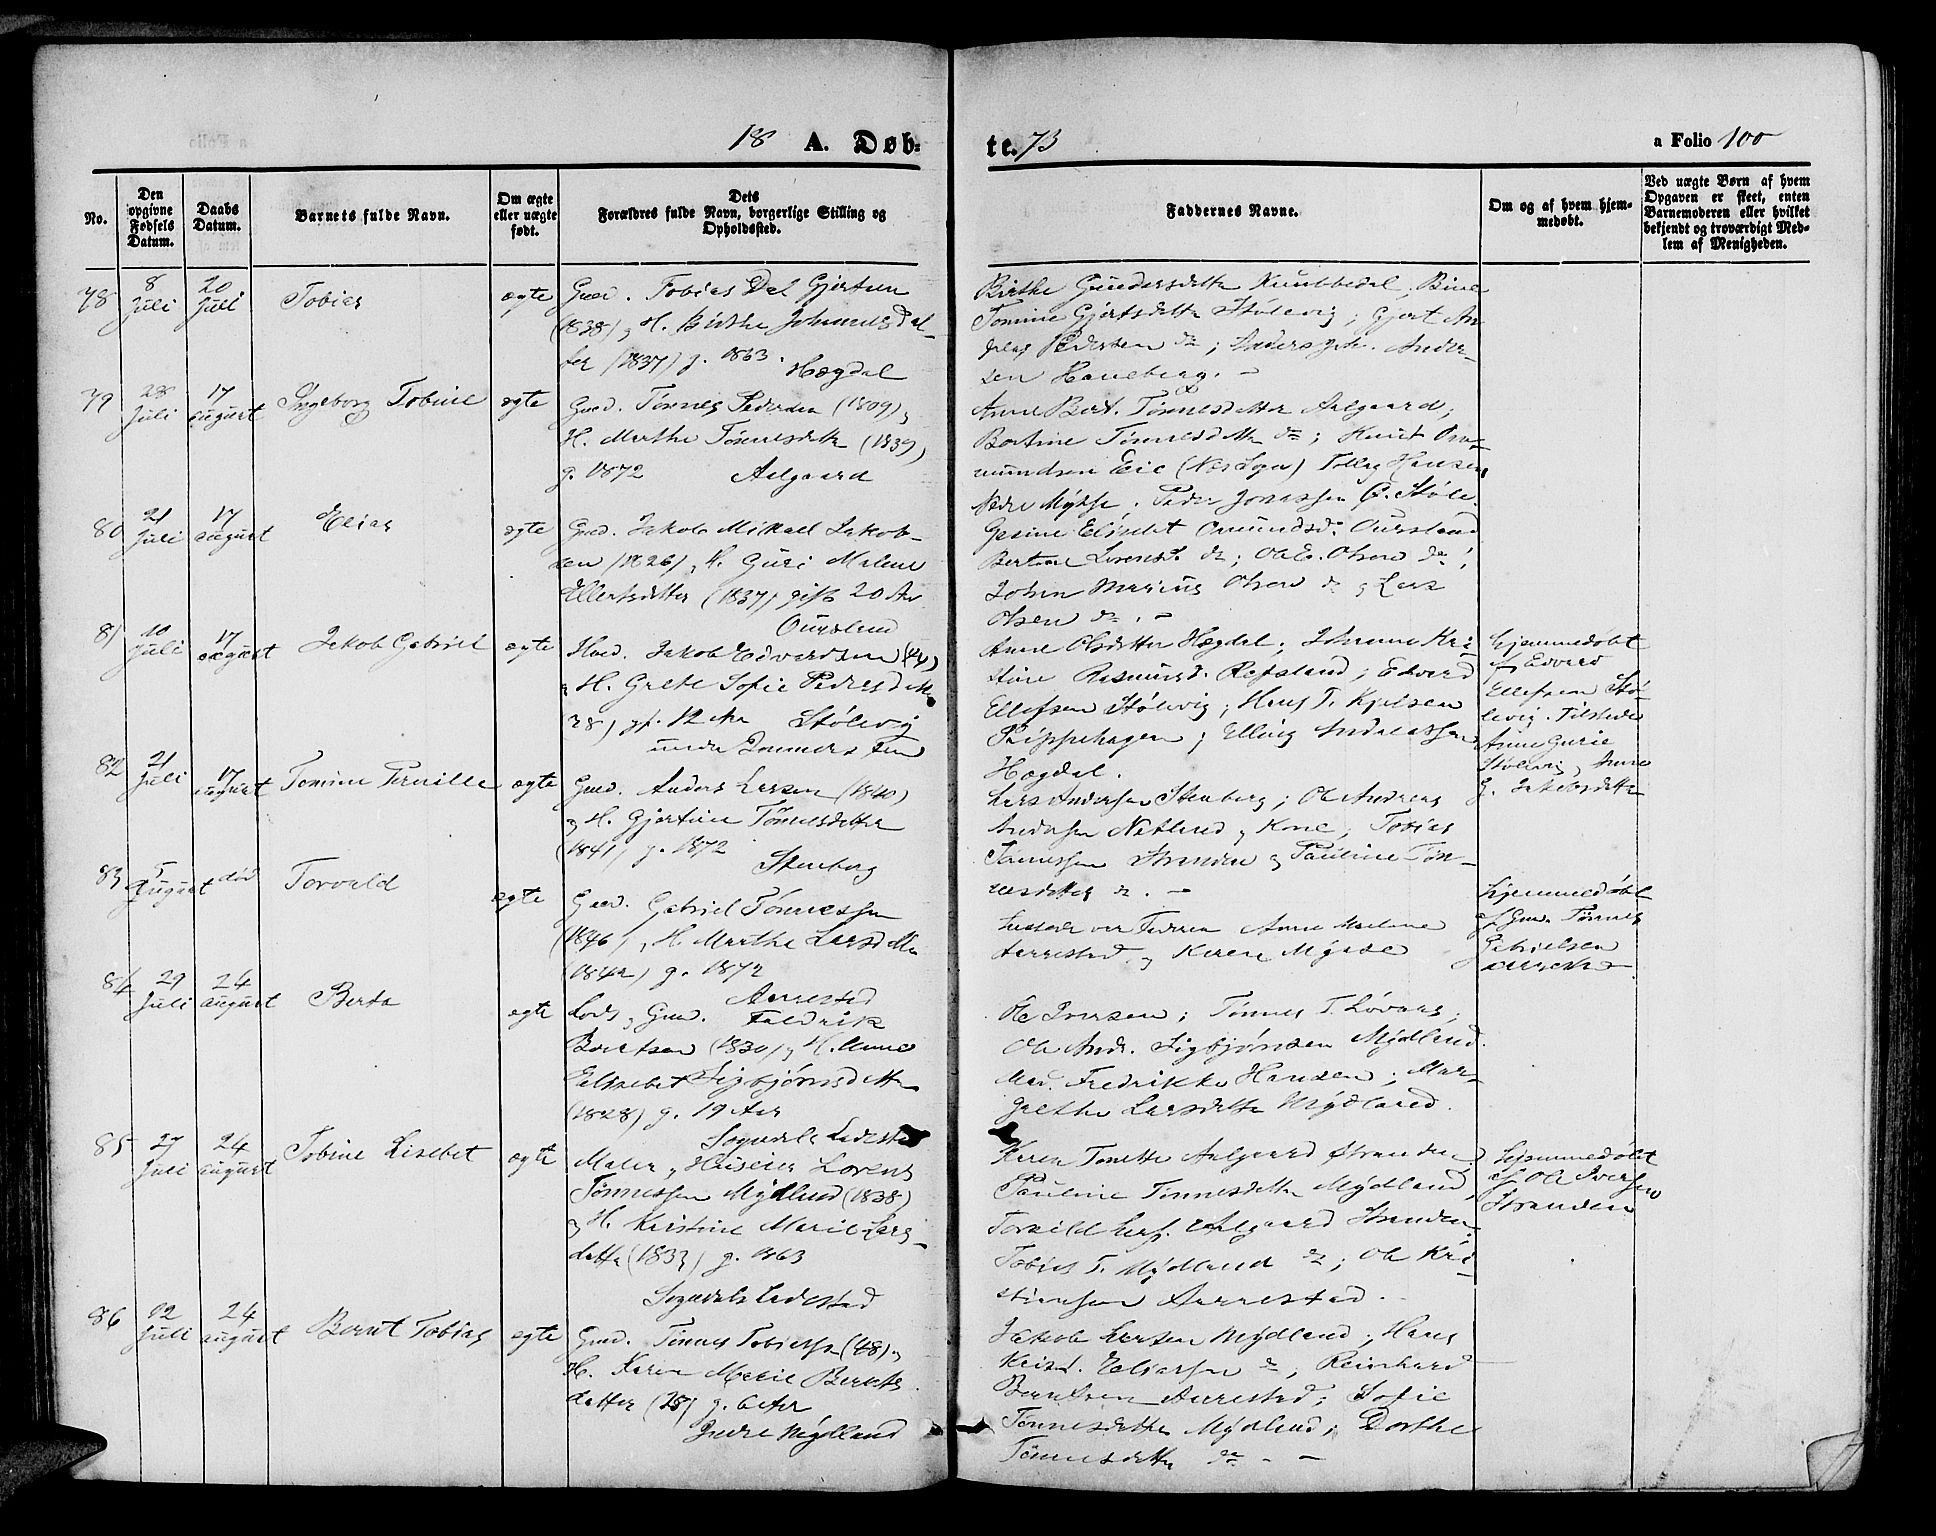 18 A. Døb-
te. 73
a Folio 100
No.
Den opgivne Fødsels Datum.
Daabs Datum.
Barnets fulde Navn.
Om ægte eller uægte født.
Dets Forældres fulde Navn, borgerlige Stilling og Opholdssted.
Faddernes Navne.
Om og af hvem hjemmedøbt.
Ved uægte Børn af hvem Opgaven er skeet, enten Barnemoderen eller hvilket bekjendt og troværdigt Medlem af Menigheden.
78
8 Juli
20 Juli
Tobias
ægte
Gaed. Tobias Dal Gjertsen
(1838) og H. Birthe
(1837) g. 1863.
Hægdal
Birthe Gundersdatter
Tomine Gjertsdatter Stølevig; Gjert An-
dreas Pedersen do; Ander-
sen Haneberg. -
79
28 Juli
17 august
Ingeborg Tobine
ægte
Gaed. Tønnes Pedersen (1809) og
H. Marthe Tønnesdatter (1839)
g. 1872 Aalgaard
Anne Bert. Tønnesdatter Aalgaard;
Bertine Tønnesdatter do; Knut Om-
mundsen Eie (Nes Sogn) Tollag Hansen
Nedre Mydse; Peder Jonassen
80
21 Juli
17 august
Elias
ægte
Gaed. Jakob Mikael Jakob-
sen (1826) og H. Guri Malene
Ellertsdatter (1837) gift 20 Aar
Oursland
Gesine Elisabet Omundsd. Oursland
Bertine do; Ole E. Olsen do;
Johan Marius Olsen do og Lars
Olsen do. -
81
10 Juli
17 august
Jakob Gabriel
ægte
Hued. Jakob Edvardsen (44)
og H. Grethe Sofie Pedersdatter
(38) gf. 12 Aar Stølevig
under
Anne Olsdatter Hægdal; Johanne Kri-
stine Rasmusd. Refsland; Edvard
Ellefsen Stølevig; Hans T. Kjelsen
Elling Andreassen
Hægdal.
hjemmedøbt
af Edvard
Ellefsen Stø-
levig. Tilstede
Anne Gurie
Stølevig og Anne
G. Jakobsdatter
82
21 Juli
17 august
Tomine Pernille
ægte
Gaed. Anders Larsen (1840)
og H. Gjertine Tønnesdatter
(1841) g. 1872
Stenberg
Lars Andersen Stenberg; Ole Andreas
Andersen Netland og Kone; Tobias
Tønnessen Stranden og Pauline Tøn-
nesdatter do. -
83
5 August
død
Torvald
ægte
Gaed. Gabriel Tønnessen
(1846) og H. Marthe Larsdatter
(1842) g. 1872
Aarrestad
Tilstede var Faderen Anne Malene
Aarrestad og Karen Mydse
Hjemmedøbt
af Gmd. Tønnes
Gabrielsen
84
29 Juli
24 august
Berta
ægte
Lods og Gmd. Faldrik
Berntsen (1830) og H. Anne
Elisabet Sigbjørnsdatter
(1828) g. 19 Aar
Sogndals Ladested
Ole Iversen; Tønnes T. Løvaas;
Ole Andr. Sigbjørnsen Mydland.
Mad. Fredrikke Hansen; Mar-
grethe Larsdatter Mydland.
85
27 Juli
24 august
Tobine Lisebet
ægte
Maler og Huseier Lorens
Tønnessen Mydland (1838)
og H. Kirstine Marie Lars-
datter (1833) g. 1863
Sogndals Ladested
Karen Tonette Aalgaard Stranden
Pauline Tønnesdatter Mydland
Torkild Aalgaard Stranden
Tobias T. Mydland do; Ole Kri-
stiansen Aarrestad.
Hjemmedøbt
af Ole Iversen
Stranden
86
12 Juli
24 august
Bernt Tobias
ægte
Gmd. Tønnes Tobiassen (48) og
H. Karen Marie Bernts-
datter (28) g. 6 Aar
Indre Mydland
Jakob Larsen Mydland; Hans
Krist. Eliassen do; Reinhard
Berntsen Aarrestad; Sofie
Tønnesdatter Mydland; Dorthe
Tønnesdatter do - -